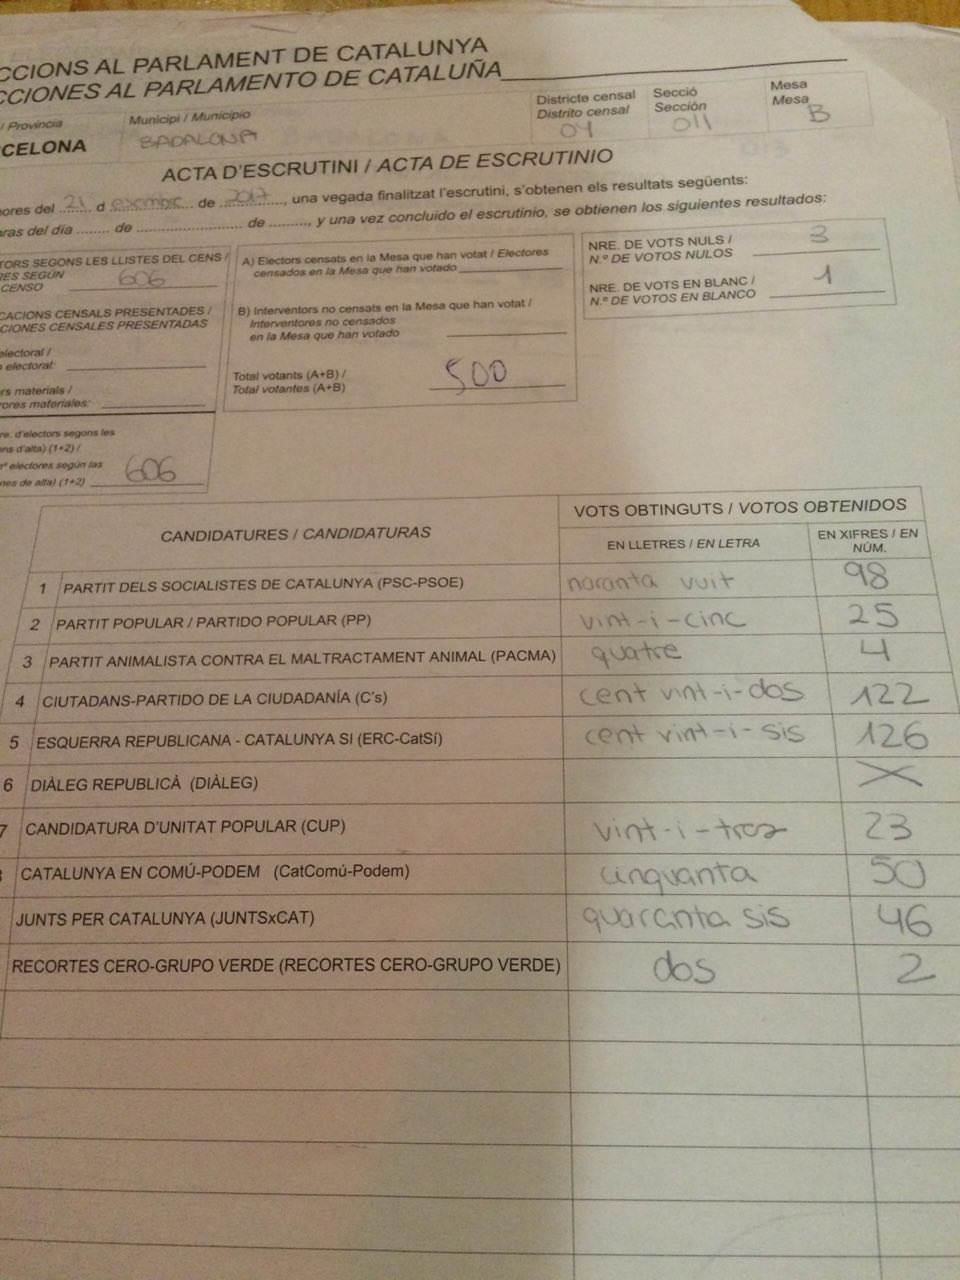 CCIONS AL PARLAMENT DE CATALUNYA
CCIONES AL PARLAMENTO DE CATALUÑA
/ Provincia
CELONA
Municipi / Municipio
BADALONA
Districte censal
Distrito censal
04
Secció
Sección
011
Mesa
Mesa
B
ACTA D'ESCRUTINI / ACTA DE ESCRUTINIO
ores del 21 d esembre de 2017, una vegada finalitzat l'escrutini, s'obtenen els resultats següents:
ras del día ........ de ........................... de ........., y una vez concluido el escrutinio, se obtienen los siguientes resultados:
TORS SEGONS LES LLISTES DEL CENS /
RES SEGÚN
CENSO 606
CACIONS CENSALS PRESENTADES /
CIONES CENSALES PRESENTADAS
electoral /
electoral:
rs materials /
rores materiales:
re. d'electors segons les
ens d'alta) (1+2) /
nº electores según las
nes de alta) (1+2) 606
A) Electors censats en la Mesa que han votat / Electores
censados en la Mesa que han votado
B) Interventors no censats en la Mesa que han votat /
Interventores no censados
en la Mesa que han votado
Total votants (A+B) /
Total votantes (A+B) 500
NRE. DE VOTS NULS /
N.º DE VOTOS NULOS 3
NRE. DE VOTS EN BLANC /
N.º DE VOTOS EN BLANCO 1
CANDIDATURES / CANDIDATURAS
VOTS OBTINGUTS / VOTOS OBTENIDOS
EN LLETRES / EN LETRA
EN XIFRES / EN
NÚM.
1 PARTIT DELS SOCIALISTES DE CATALUNYA (PSC-PSOE) noranta vuit 98
2 PARTIT POPULAR / PARTIDO POPULAR (PP) vint-i-cinc 25
3 PARTIT ANIMALISTA CONTRA EL MALTRACTAMENT ANIMAL (PACMA) quatre 4
4 CIUTADANS-PARTIDO DE LA CIUDADANÍA (C's) cent vint-i-dos 122
5 ESQUERRA REPUBLICANA - CATALUNYA SI (ERC-CatSí) cent vint-i-sis 126
6 DIÀLEG REPUBLICÀ (DIÀLEG)
7 CANDIDATURA D'UNITAT POPULAR (CUP) vint-i-tres 23
CATALUNYA EN COMÚ-PODEM (CatComú-Podem) cinquanta 50
JUNTS PER CATALUNYA (JUNTSxCAT) quaranta sis 46
RECORTES CERO-GRUPO VERDE (RECORTES CERO-GRUPO VERDE) dos 2